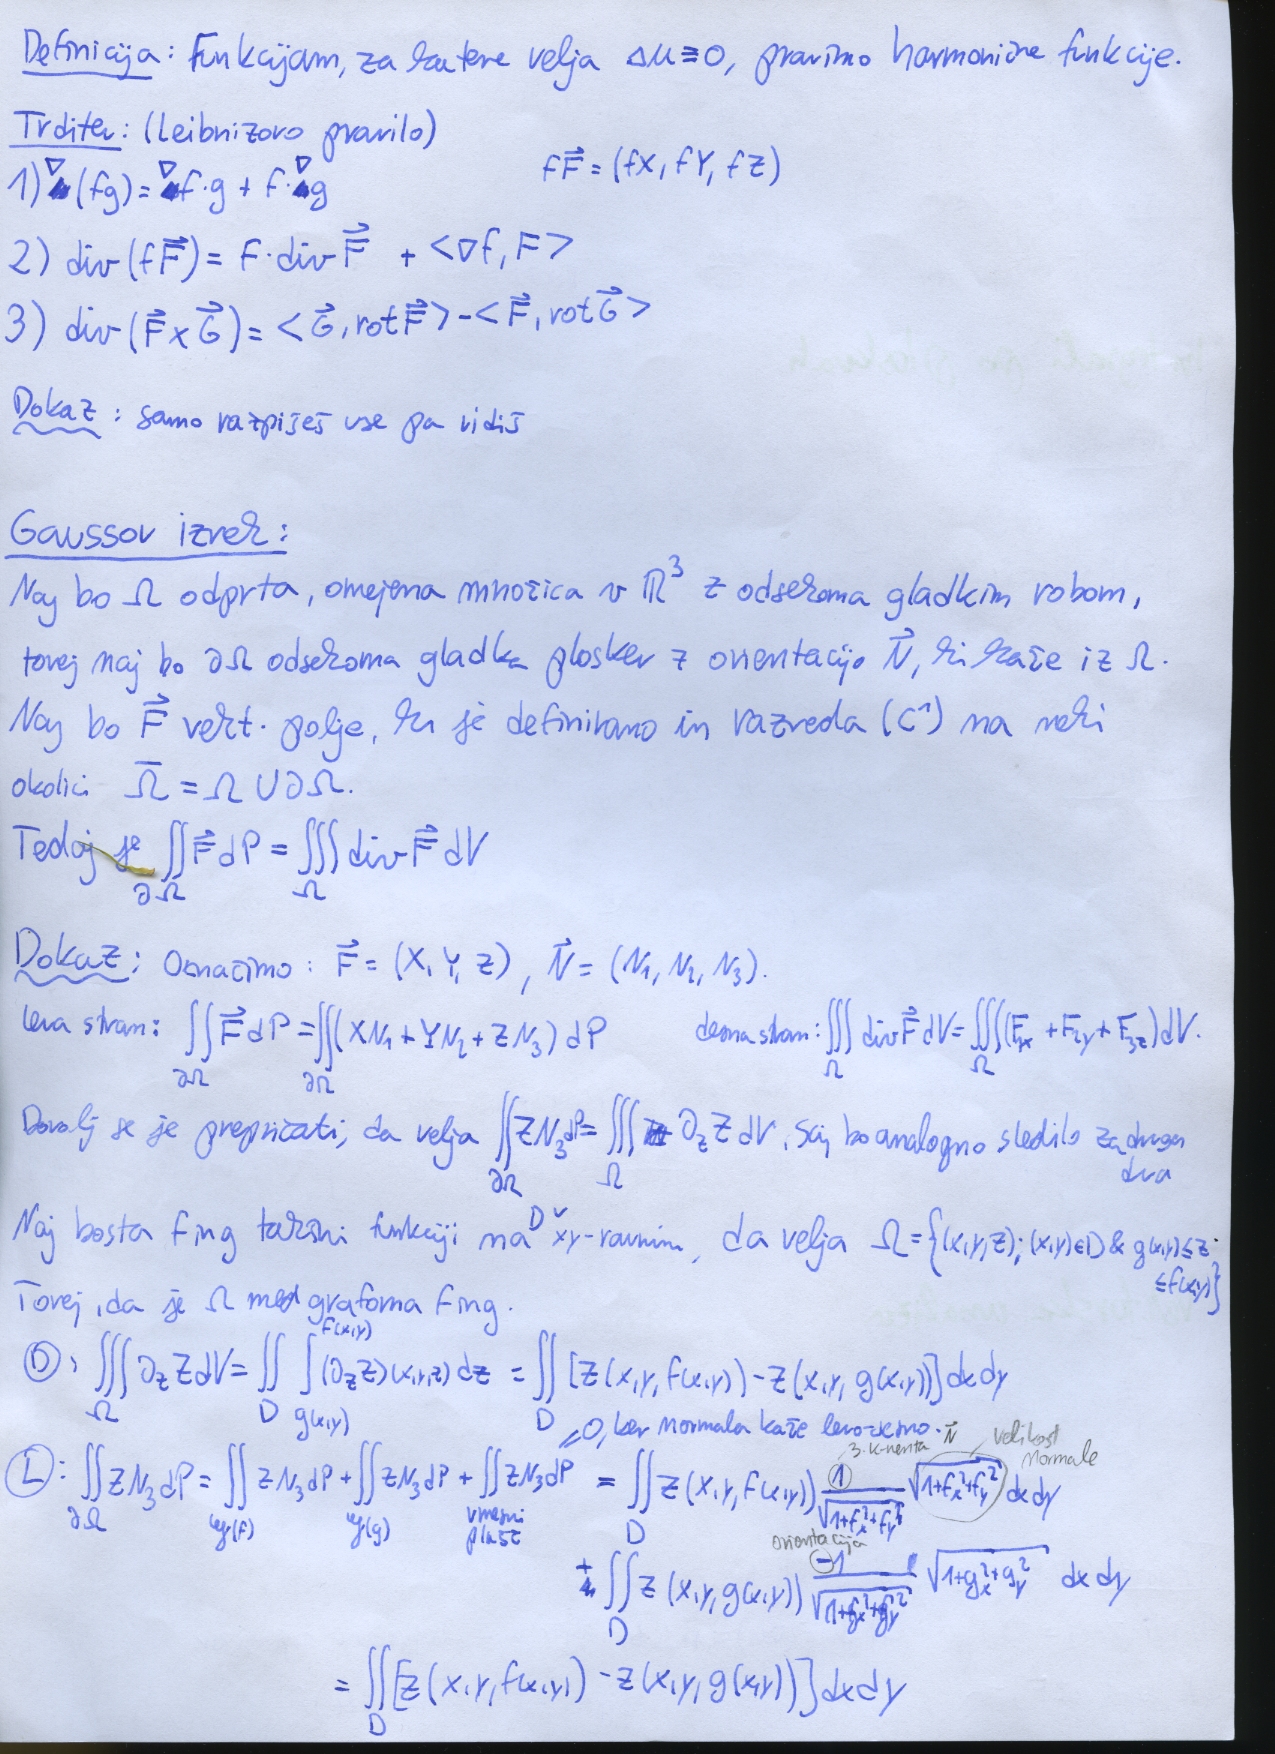 Definicija: Funkcijam, za katere velja Δu≡0, pravimo harmonične funkcije.
Trditev: (Leibnizovo pravilo)
1) ∇(fg) = ∇f·g + f·∇g
fF⃗ = (fX, fY, fZ)
2) div(fF⃗) = f·div F⃗ + <∇f, F>
3) div(F⃗×G⃗) = <G⃗, rotF⃗> - <F⃗, rotG⃗>
Dokaz: samo razpišeš vse pa vidiš
Gaussov izrek:
Naj bo Ω odprta, omejena množica v ℝ³ z odsekoma gladkim robom,
torej naj bo ∂Ω odsekoma gladka ploskev z orientacijo N⃗, ki kaže iz Ω.
Naj bo F⃗ vekt. polje, ki je definirano in razreda (C¹) na neki
okolici Ω̅ = Ω ∪ ∂Ω.
Tedaj je ∬_∂Ω F⃗ dP = ∭_Ω div F⃗ dV
Dokaz: Označimo: F⃗ = (X, Y, Z), N⃗ = (N₁, N₂, N₃).
leva stran: ∬_∂Ω F⃗ dP = ∬_∂Ω (XN₁ + YN₂ + ZN₃) dP
desna stran: ∭_Ω div F⃗ dV = ∭_Ω (F₁ₓ + F₂y + F₃z) dV.
Dovolj se je prepričati, da velja ∬_∂Ω ZN₃ dP = ∭_Ω ∂_z Z dV, saj bo analogno sledilo za druga
dva
Naj bosta f in g takšni funkciji na D v xy-ravnini, da velja Ω = {(x,y,z); (x,y)∈D & g(x,y) ≤ z
≤ f(x,y)}
Torej, da je Ω med grafoma f in g.
Ⓓ: ∭_Ω ∂_z Z dV = ∬_D ∫_{g(x,y)}^{f(x,y)} (∂_z Z)(x,y,z) dz = ∬_D [Z(x,y,f(x,y)) - Z(x,y,g(x,y))] dx dy
=0, ker normala kaže levo-desno.
3. k-nenta N⃗
velikost
normale
Ⓛ: ∬_∂Ω ZN₃ dP = ∬ ZN₃ dP + ∬ ZN₃ dP + ∬ ZN₃ dP = ∬_D Z(x,y,f(x,y)) 1/√(1+fₓ²+f_y²) √(1+fₓ²+f_y²) dx dy
(f)
(g)
vmesni
plašč
orientacija
+ ∬_D Z(x,y,g(x,y)) -1/√(1+gₓ²+g_y²) √(1+gₓ²+g_y²) dx dy
= ∬_D [Z(x,y,f(x,y)) - Z(x,y,g(x,y))] dx dy